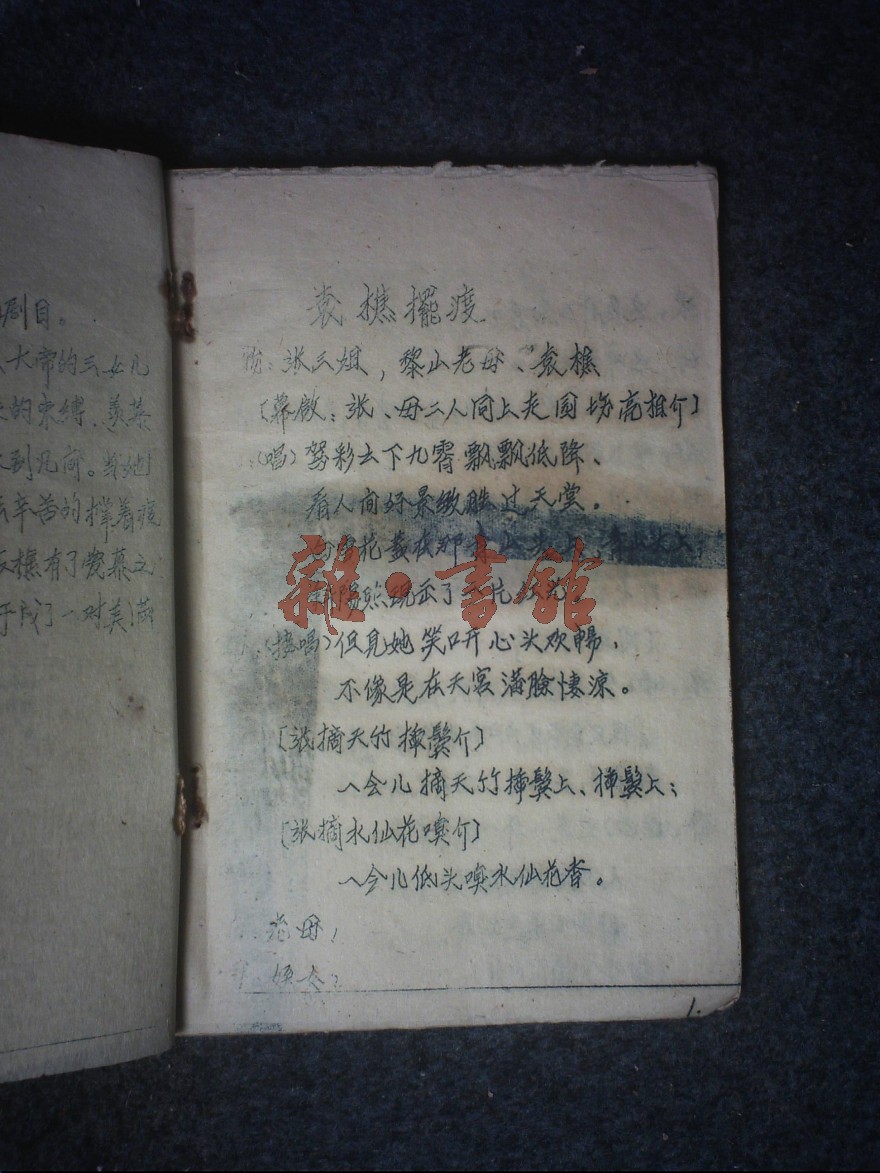 剧目。
大帝的三女儿
的束缚、羡慕
到凡间。当她
辛苦的撑着渡
樵有了爱慕之
成了一对美满
袁樵擺渡
扮:张三姐,黎山老母、袁樵
〔幕啟:张、母二人同上走园场亮相介〕
(唱)驾彩云下九霄飘飘低降、
看人间好景緻胜过天堂。
花栽在那青山
陽照现出了一片
(接唱)但見她笑口开心头欢暢,
不像是在天宫满臉悽涼。
〔张摘天竹插鬓介〕
一会儿摘天竹插鬓上、插鬓上;
〔张摘水仙花嗅介〕
一会儿低头嗅水仙花香。
老母!
1.
雜·書館